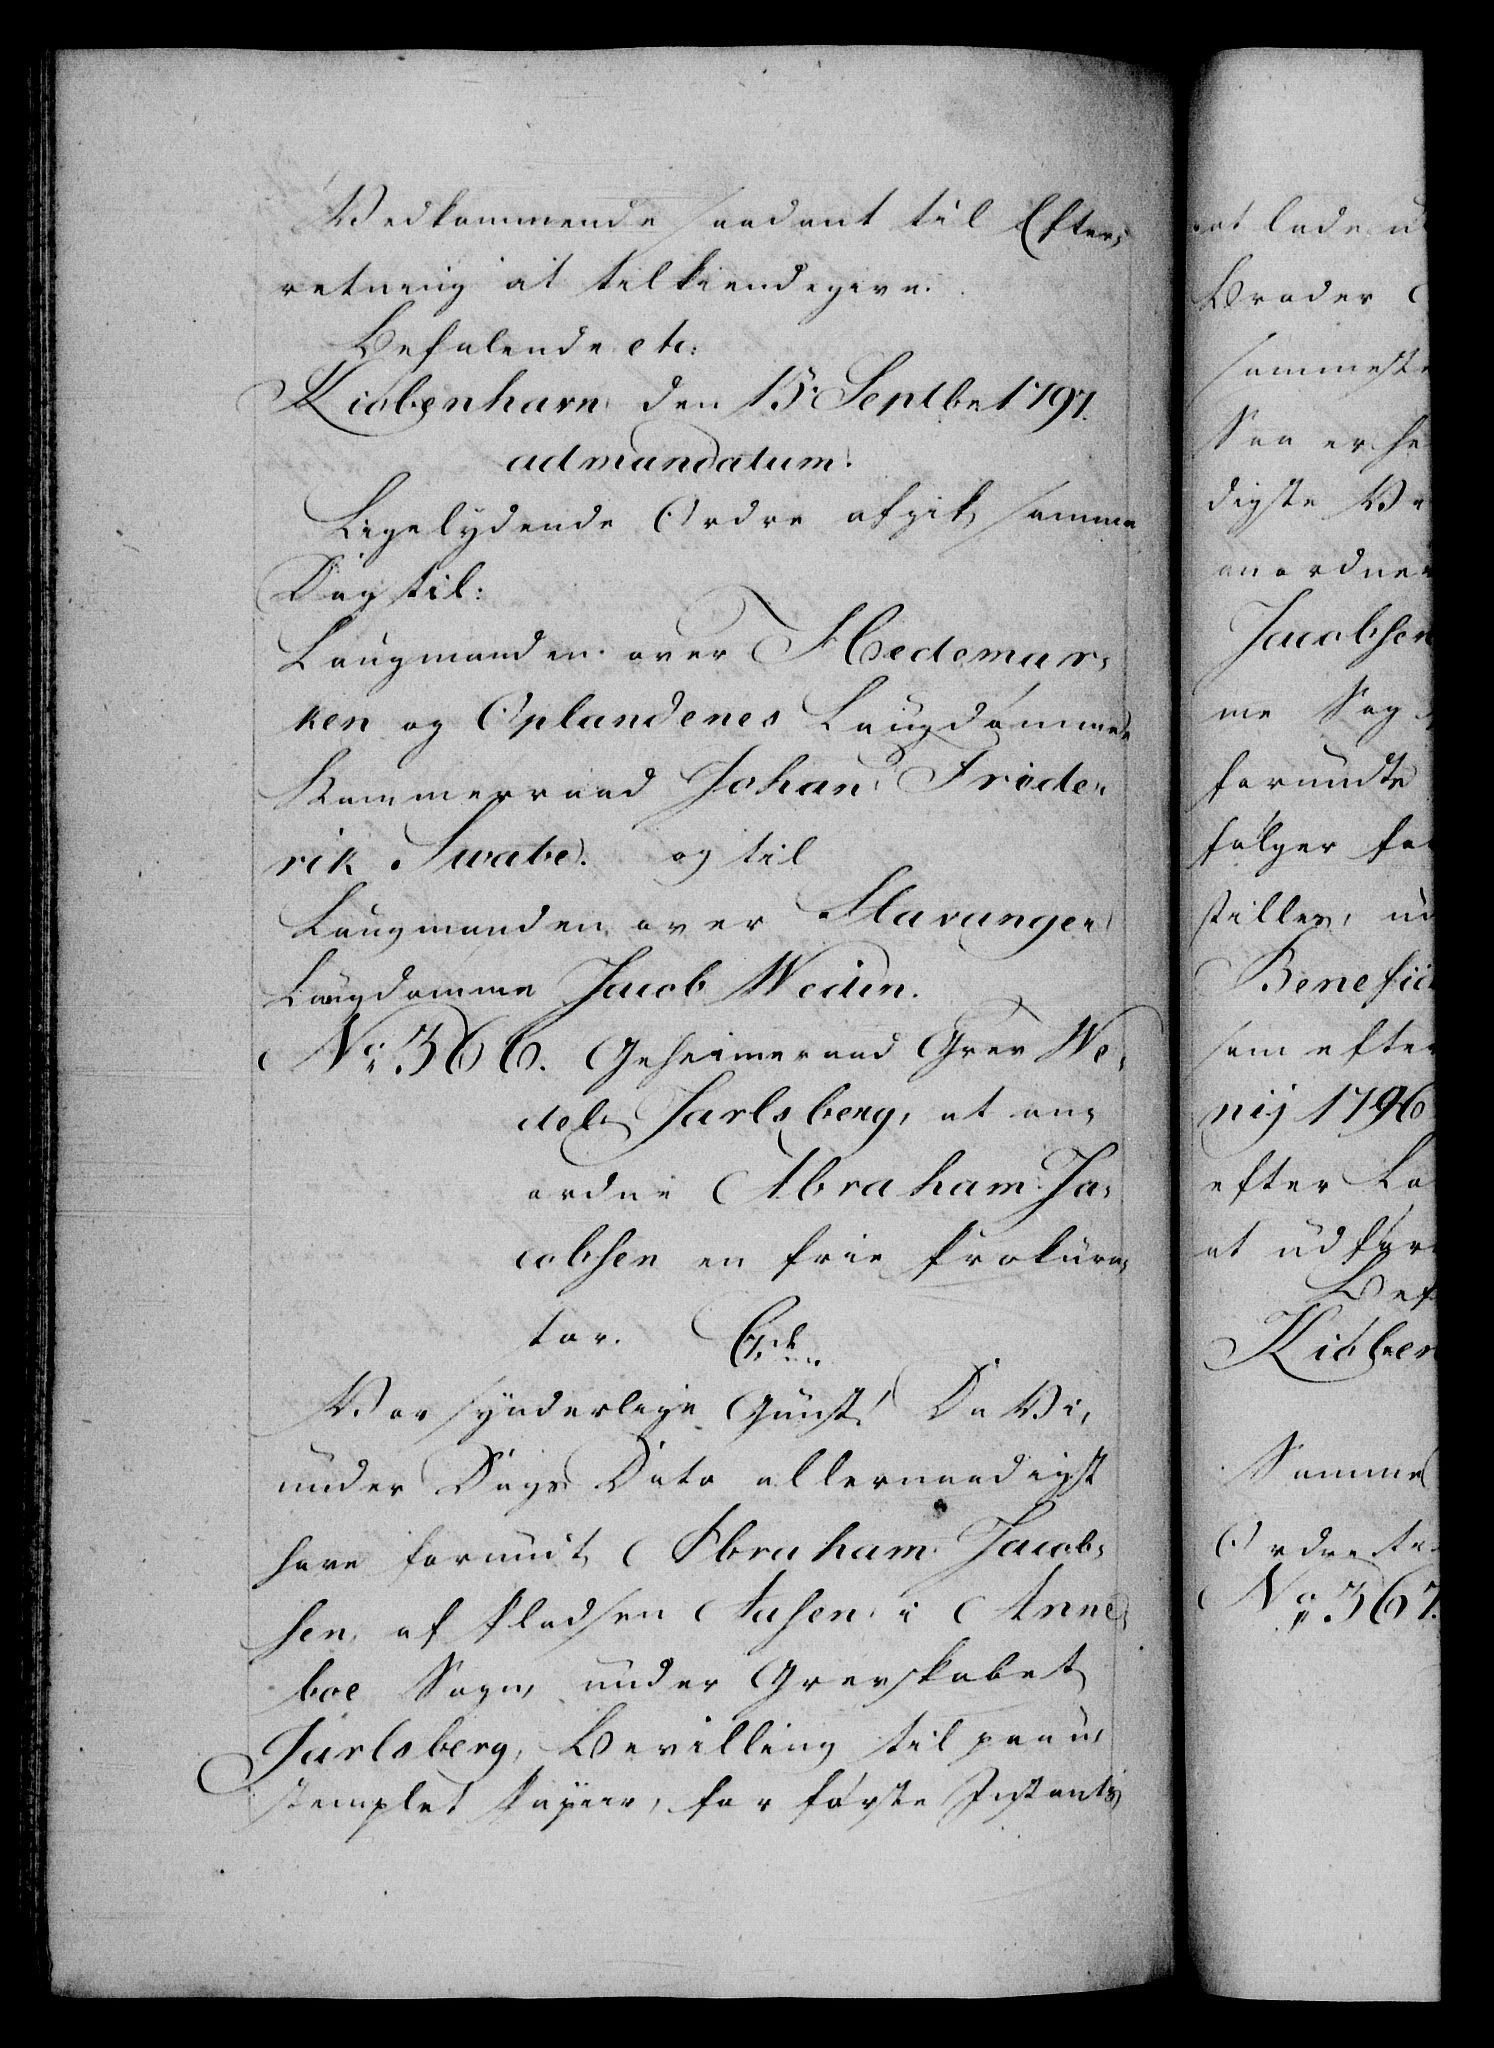 Vedkommende saadant til Efter,
retning at tilkiendegive.
Befalende etc:
Kiøbenhavn den 15 Septbr 1797.
ad mandatum.
Ligelydende Ordre afgik samme
Dag til:
Laugmanden over Hedemar,
ken og Oplandenes Laugdømme
Kammerraad Johan Fride,
rik Swabe. og til
Laugmanden over Stavanger
Laugdømme Jacob Weden.
No 366. Geheimeraad Grev We,
del Jarlsberg, at an,
ordne Abraham Ja,
cobsen en frie Prokura,
tor.
Vor synderlige Gunst! Da Vi,
under Dags Dato allernaadigst
have forundt Abraham Jacob,
sen, af Pladsen Aasen i Anne,
boe Sogn, under Grevskabet
Jarlsberg, Bevilling til paa u,
stemplet Papiir, for første Instants
at lade u
Broder
sammeste
Saa er he
digste Ve
anordner
Jacobsen
me Sag
forundte
følger fo
stilles, ud
Benefici
som efter
nij 1796
efter Lo
at udføre
Bef
Kiøben
Samme
Ordre te
No 367.